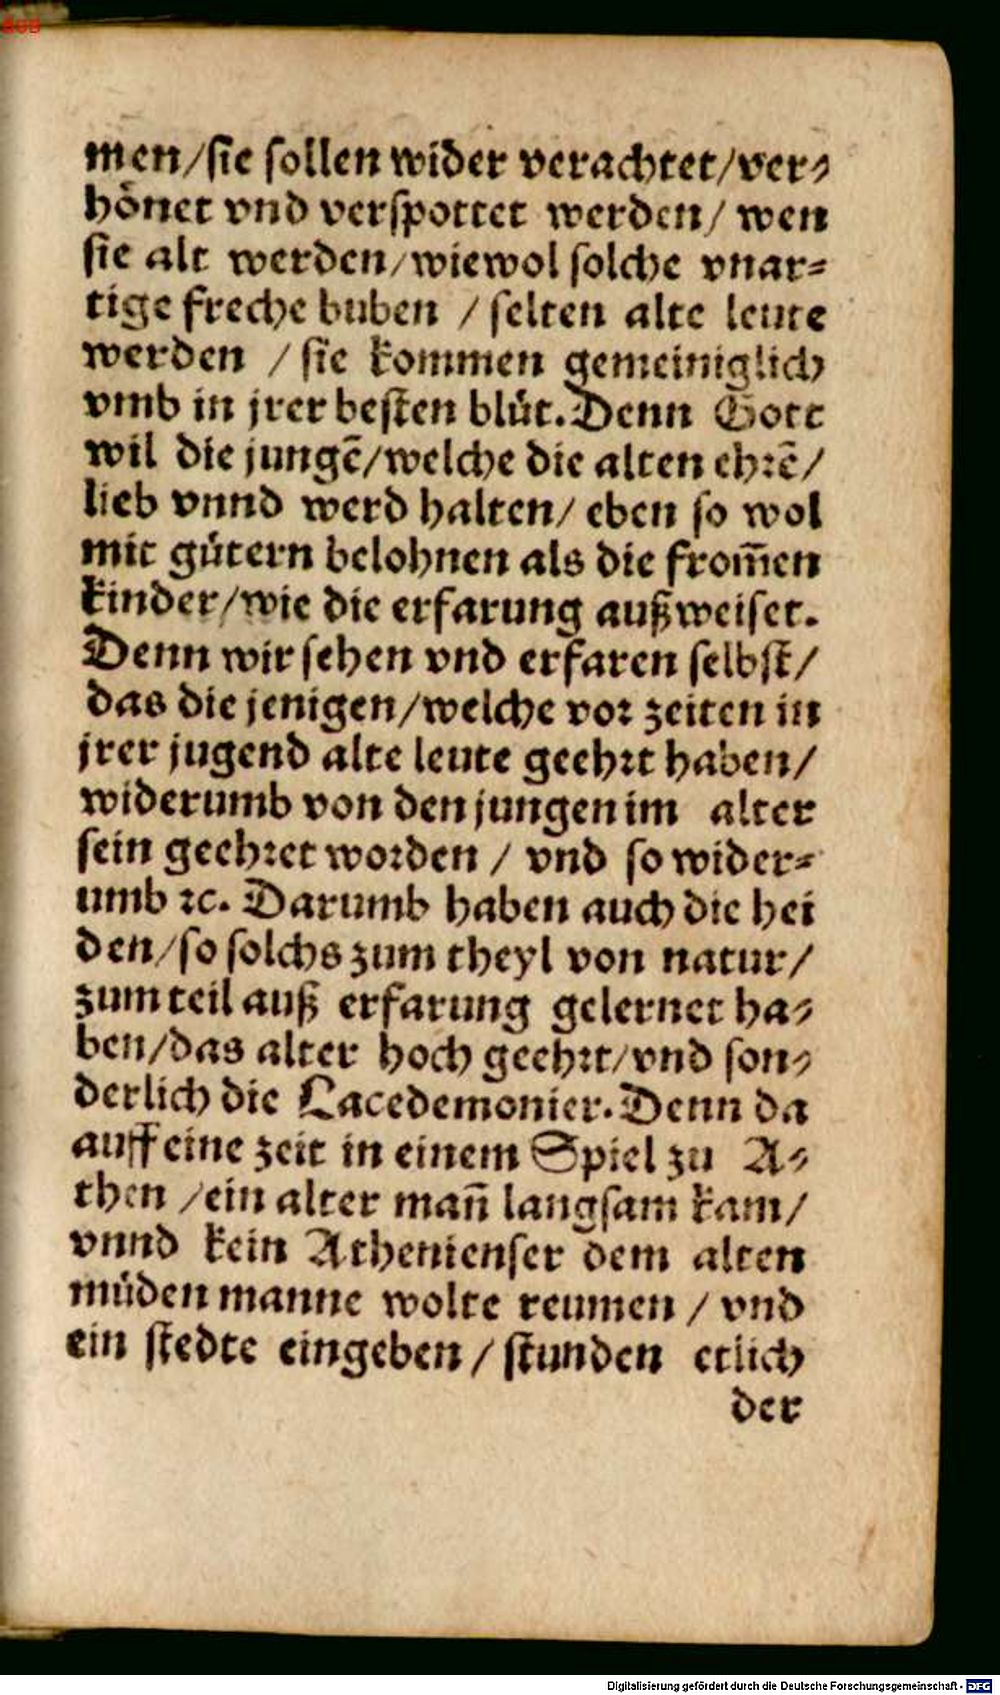 BSB
men/sie sollen wider verachtet/ver⸗
hönet vnd verspottet werden/ wen
sie alt werden/wiewol solche vnar⸗
tige freche buben / selten alte leute
werden / sie kommen gemeiniglich
vmb in jrer besten blüt. Denn Gott
wil die jungē/welche die alten ehrē/
lieb vnnd werd halten/ eben so wol
mit gütern belohnen als die from̄en
kinder/wie die erfarung außweiset.
Denn wir sehen vnd erfaren selbst/
das die jenigen/welche vor zeiten in
jrer jugend alte leute geehrt haben/
widerumb von den jungen im alter
sein geehret worden / vnd so wider⸗
umb ꝛc. Darumb haben auch die hei
den/so solchs zum theyl von natur/
zum teil auß erfarung gelernet ha⸗
ben/das alter hoch geehrt/vnd son⸗
derlich die Lacedemonier. Denn da
auff eine zeit in einem Spiel zu A⸗
then /ein alter man̄ langsam kam/
vnnd kein Athenienser dem alten
müden manne wolte reumen / vnd
ein stedte eingeben / stunden etlich
der
Digitalisierung gefördert durch die Deutsche Forschungsgemeinschaft - DFG